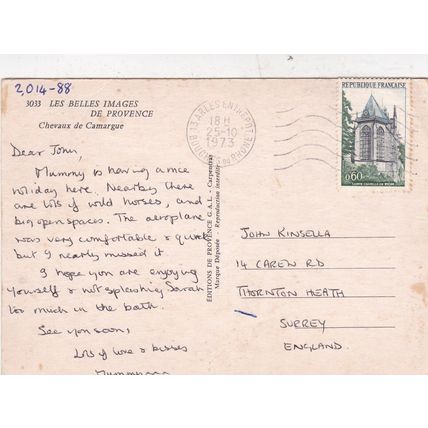 2,014-88
3033 LES BELLES IMAGES
DE PROVENCE
Chevaux de Camargue
Dear John,
Mummy is having a nice
holiday here. Nearby there
are lots of wild horses, and
big open spaces. The aeroplane
was very comfortable & quick
but I nearly missed it.
I hope you are enjoying
yourself & not splashing Sarah
too much in the bath.
See you soon,
lots of love & kisses
Mummy
ÉDITIONS DE PROVENCE G.A.L. - Carpentras
Marque Déposée - Reproduction interdite
13 ARLES ENTREPOT
18 H
25-10
1973
BOUCHES DU RHONE
REPUBLIQUE FRANÇAISE
0,60
SAINTE CHAPELLE DE RIOM
JOHN KINSELLA
14 CAREW RD
THORNTON HEATH
SURREY
ENGLAND.